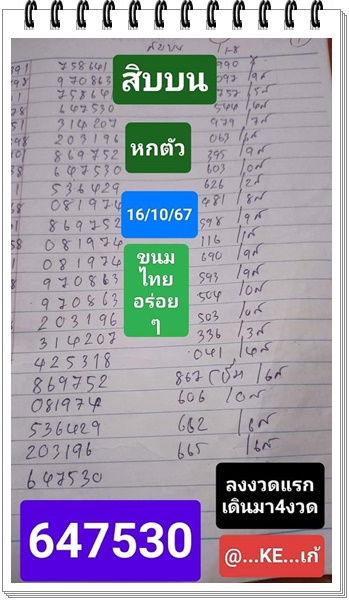 สิบบน
758641 990
970863 097 /9ส
75864 757 /5ส
647530 544 /4ส
314207 979 /7ส
203196 063 /6ส
869752 395 /9ส
647530 603 /0ส
536429 626 /2ส
081974 481 /8ส
869752 598 /9ส
081974 116 /1ส
081974 690 /9ส
970863 593 /9ส
970863 504 /0ส
203196 503 /0ส
314207 336 /3ส
425318 041 /4ส
869752 867 /6ส
081974 606 /0ส
536429 662 /6ส
203196 665 /6ส
647530
สิบบน
หกตัว
16/10/67
ขนม
ไทย
อร่อย
ๆ
ลงงวดแรก
เดินมา4งวด
647530
@...KE...เก้